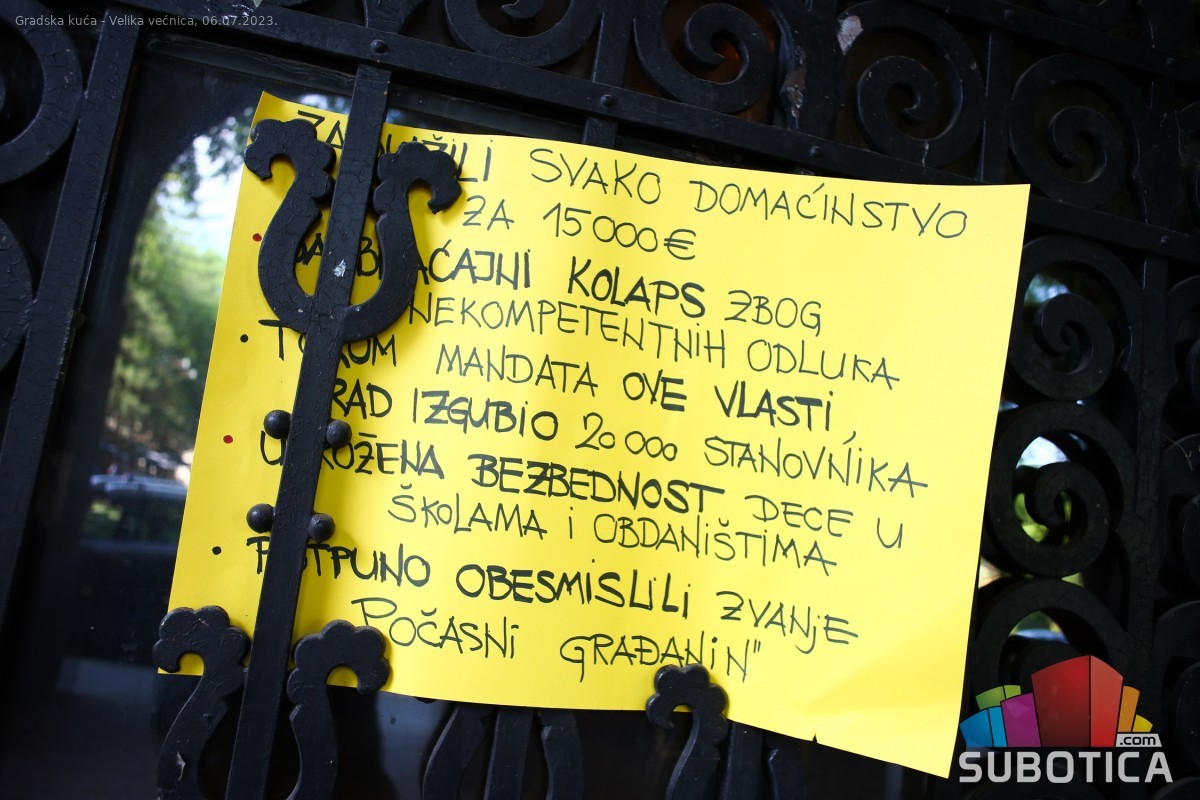 Gradska kuća - Velika većnica, 06.07.2023.
SVAKO DOMAĆINSTVO
ZA 15000€
KOLAPS ZBOG
NEKOMPETENTNIH ODLUKA
• MANDATA OVE VLASTI,
GRAD IZGUBIO 20000 STANOVNIKA
• UGROŽENA BEZBEDNOST DECE U
ŠKOLAMA I OBDANIŠTIMA
• POTPUNO OBESMISLILI ZVANJE
POČASNI GRAĐANIN"
.com
SUBOTICA